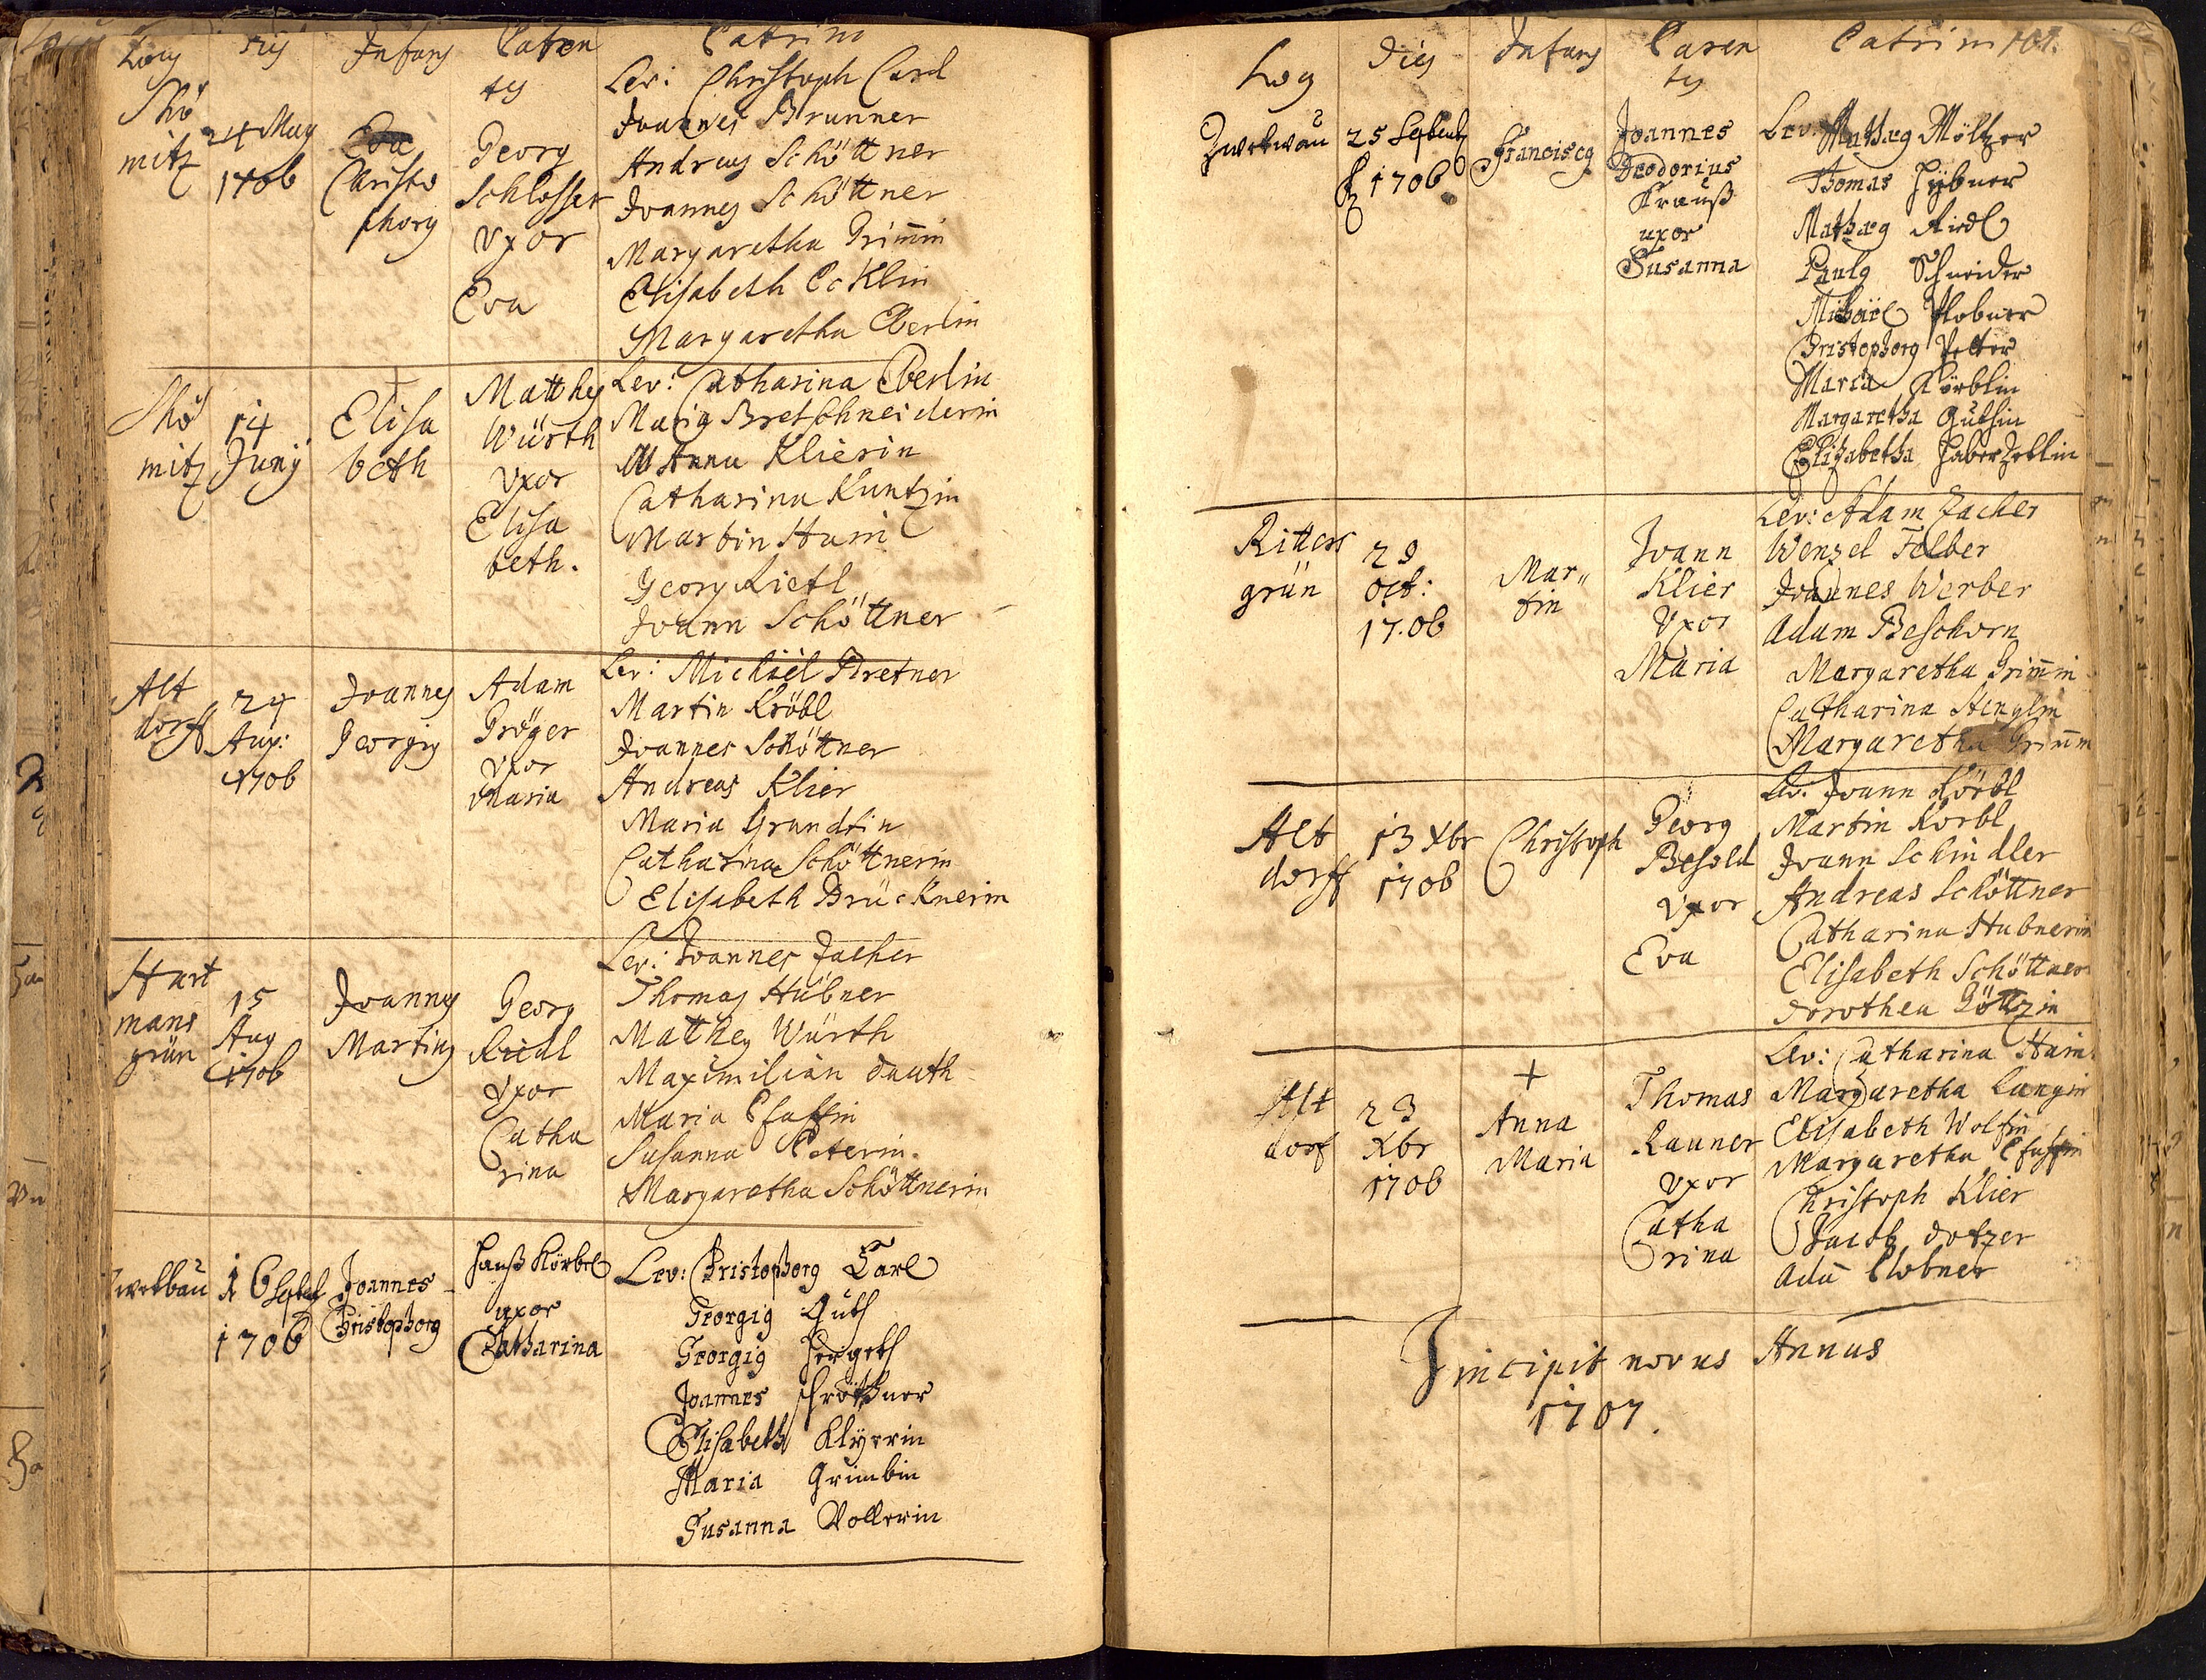 Dies Infans Paren Patrini
tes
Lev: Christoph Carl
Joannes Brunner
Andreas Schöttner
Joannes Schöttner
Margaretha Grimin
Elisabeth Ecklin
Margaretha Eberlin
mitz
24 May
1706
Eva
Christo
phorg
Georg
Schlosser
Vxor
Eva
mitz
14
Junÿ
Elisa
beth
Matthey
Würth
Vxor
Elisa
beth.
Lev: Catharina Eberlin
Maria Bretschneiderin
Anna Klierin
Catharina Kuntzin
Martin Ham
Georg Rietl
Joann Schöttner
Alt
dorff
24
Aug:
1706
Joannes
Georgig
Adam
Gröger
Vxor
Maria
Lev: Michäel Bretner
Martin Kröbl
Joannes Schöttner
Andreas Klier
Maria Grundtin
Catharina Schöttnerin
Elisabeth Brücknerin
Hart
mans
grün
15
Aug
1706
Joannes
Marting
Georg
Riedl
Vxor
Catha
rina
Lev: Joannes Zacher
Thomas Hübner
Mathey Würth
Maximilian Dauth
Maria Pfaffin
Susanna Peterin.
Margaretha Schöttnerin
Zwetbau
16 Septeb
1706
Joannes
Christophorg
Hanß Körbel
uxor
Catharina
Lev: Christophorg Carl
Georgig Guth
Georgig Hergeth
Joannes Schröthner
Elisabeth Klÿerin
Maria Grimbin
Susanna Vollerin
Log Dies Infans Paren Patrini 101.
tes
Zwetwau
25 Septemb
1706
Franciscg
Joannes
Deodorius
Krauß
uxor
Susanna
Lev: Mathæg Möltzer
Thomas Hÿbner
Mathæg Riedl
Paulg Schneider
Michäel Plobner
Christophorg Petter
Maria Körblin
Margaretha Guthin
Elisabetha Haberzettlin
Ritters
grün
29
Oct:
1706
Mar"
tin
Joann
Klier
Vxor
Maria
Lev: Adam Zacher
Wenzel Felber
Joannes Werber
Adam Beschorn
Margaretha Grimin
Catharina Stenglin
Margaretha Grimin
Alt
dorff
13 Xbr
1706
Christoph
Georg
Besold
Vxor
Eva
Lev: Joann Körbl
Martin Korbl
Joann Schindler
Andreas Schöttner
Catharina Hubnerin
Elisabeth Schöttner
Dorothea Göttzin
Alt
dorf
23
Xbr
1706
+
Anna
Maria
Thomas
Launer
Vxor
Catha
rina
Lev: Catharina Ham
Margaretha Langin
Elisabeth Wolfin
Margaretha Pfaffin
Christoph Klier
Jacob Dotzer
Adā Plobner
Incipit novus Annus
1707.